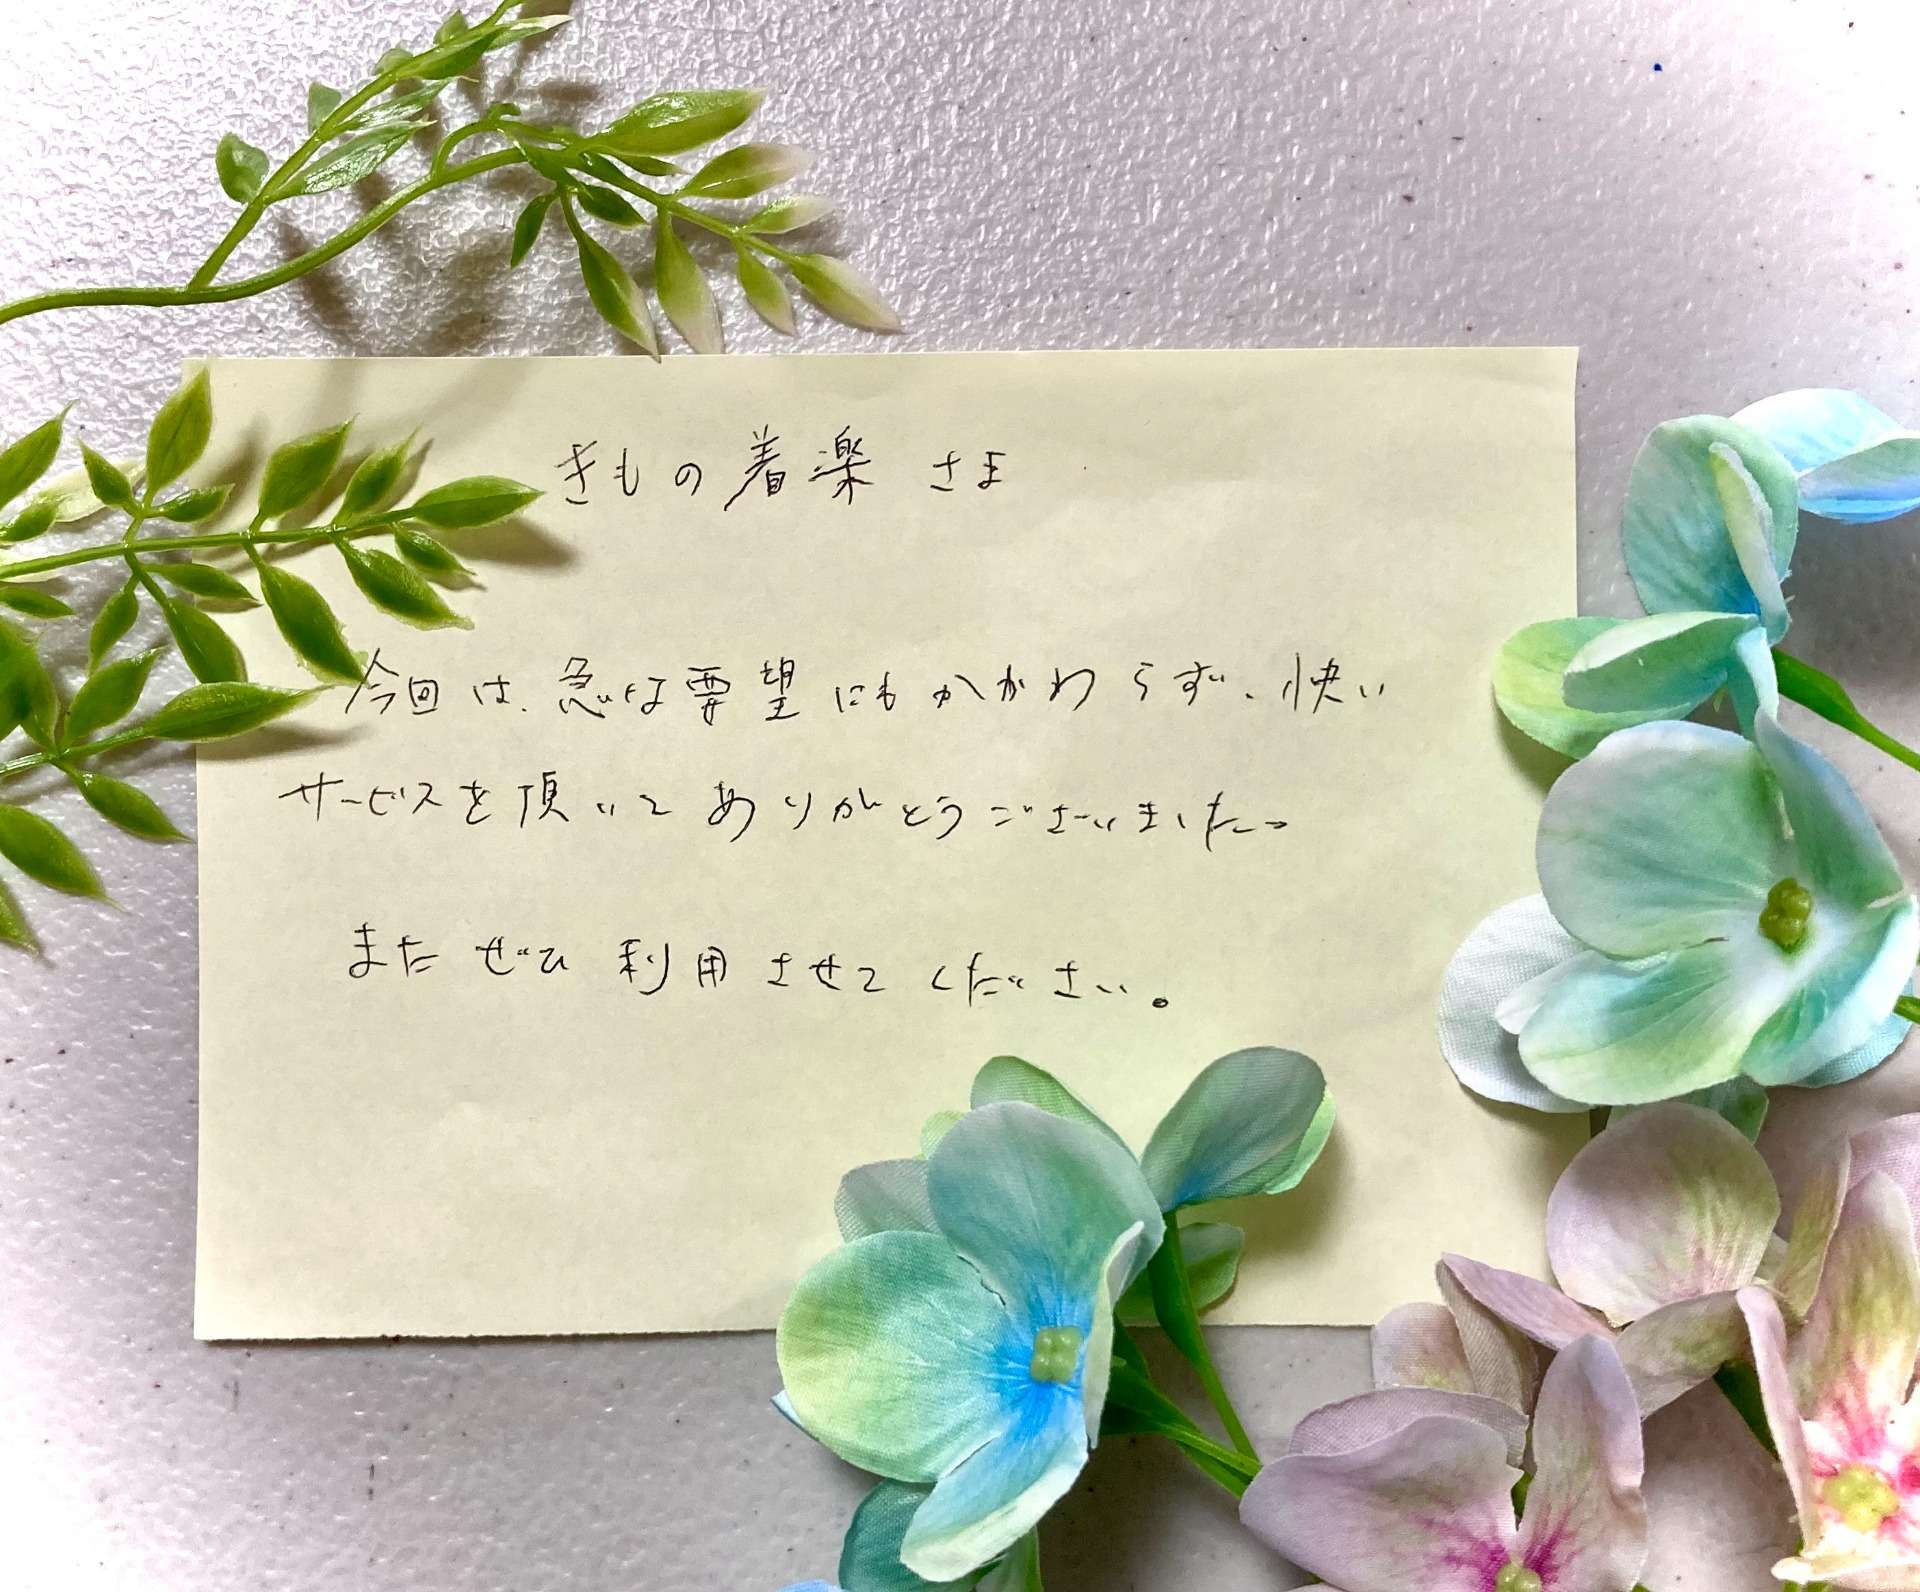 きもの着楽 さま
今回は、急な要望にもかかわらず、快い
サービスを頂いてありがとうございました。
またぜひ利用させてください。